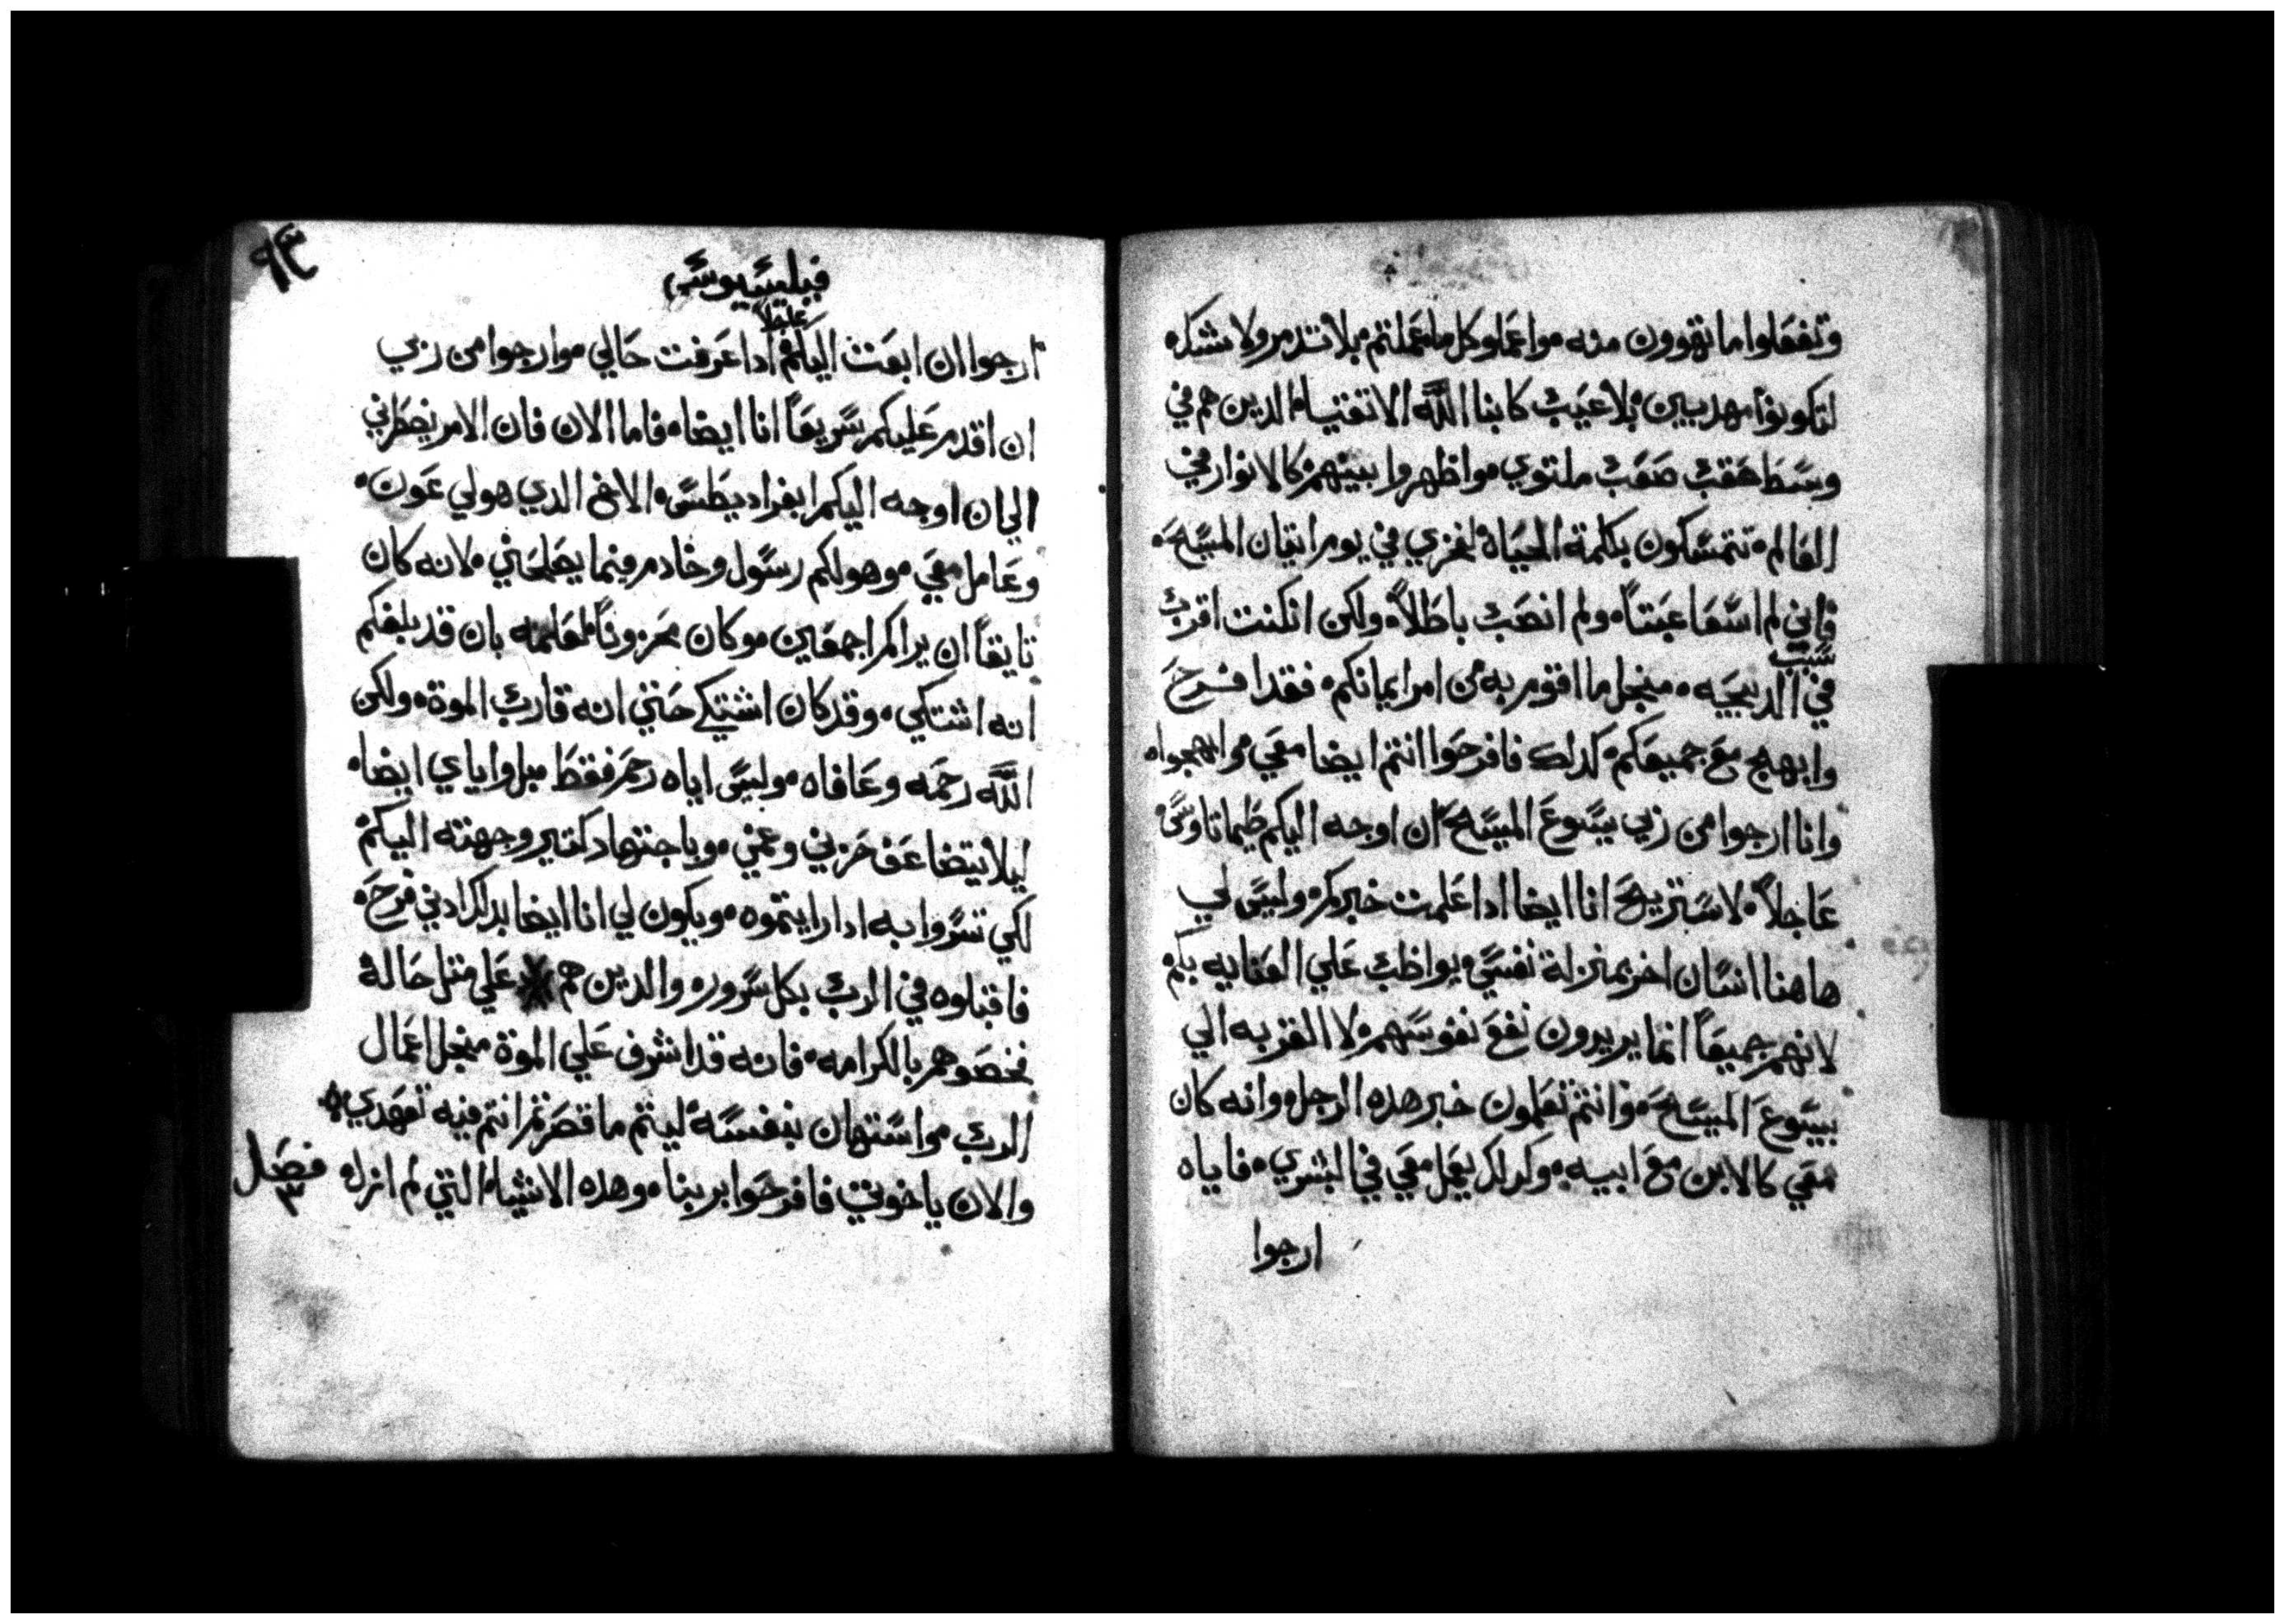 وتفعلوا ما تهوون منه، واعملوا كل ما عملتم بلا تدمر ولا شك
لتكونوا مهدبين بلا عيب كابنا الله الاتقيا الدين هم في
وسط حقب صعب ملتوي، واظهروا بينهم كالانوار في
العالم، تتمسكون بكلمة الحياة لفخري في يوم اتيان المسيح،
فاني لم اسعا عبتاً، ولم انصب باطلاً، ولكن ان كنت اقرب
سبب
في الدبيحه، منجل ما اقوم به من امر ايمانكم، فقد افرح
وابهج مع جميعكم، كدلك فافرحوا انتم ايضا معي، وابهجوا،
وانا ارجوا من ربي يسوع المسيح ان اوجه اليكم طيماتاوس
عاجلاً، لاستريح انا ايضا ادا علمت خبركم، وليس لي
هاهنا انسان اخر بمنزلة نفسي يواظب علي العنايه بكم
لانهم جميعاً انما يريدون نفع نفوسهم، لا القربه الي
يسوع المسيح، وانتم تعلمون خبر هده الرجل، وانه كان
معي كالابن مع ابيه، وكدلك يعمل معي في البشري، فاياه
ارجوا
٩٣
فيليبسيوس
عاجلا
ارجوا ان ابعت اليكم ادا عرفت حالي، وارجوا من ربي
ان اقدم عليكم سريعاً انا ايضا، فاما الان فان الامر يضطرني
الي ان اوجه اليكم ابفراديطس، الاخ الدي هو لي عون،
وعامل معي، وهو لكم رسول وخادم فيما يصلحني، لانه كان
تايقاً ان يراكم اجمعين، وكان محزوناً لعلمه بان قد بلغكم
انه اشتكي، وقد كان اشتكي حتي انه قارب الموة، ولكن
الله رحمه وعافاه، وليس اياه رحم فقط، بل واياي ايضا،
ليلا يتضاعف حزني وغمي، وباجتهاد كتير وجهته اليكم
لكي تسروا به ادا رايتموه، ويكون لي انا ايضا بدلك ادني فرحه
فاقبلوه في الرب بكل سرور، والدين هم علي متل حالة
فخصوهم بالكرامه، فانه قد اشرف علي الموة منجل اعمال
الرب، واستهان بنفسه ليتم ما قصرتم انتم فيه تعهدي،
والان ياخوتي فافرحوا بربنا، وهده الاشياء التي لم ازل
فصل
٣